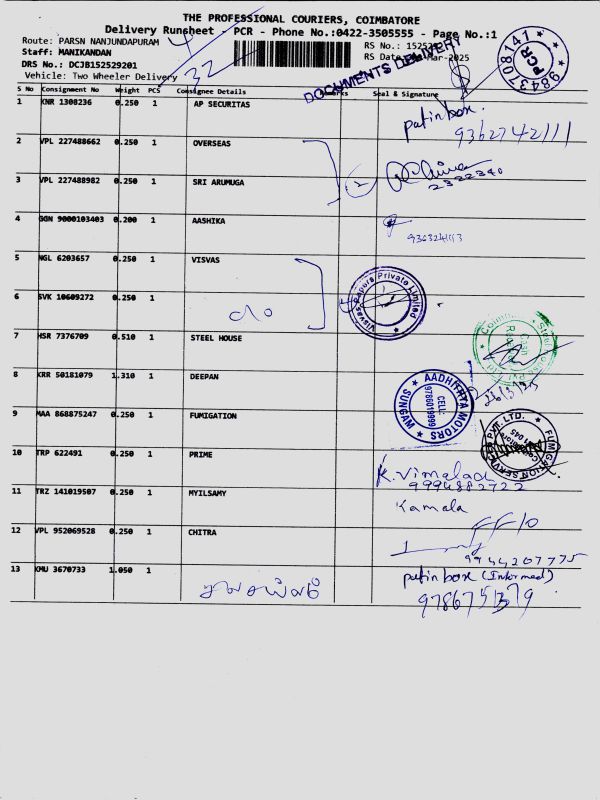 THE PROFESSIONAL COURIERS, COIMBATORE
Delivery Runsheet - PCR - Phone No.:0422-3505555 - Page No.:1
Route: PARSN NANJUNDAPURAM
Staff: MANIKANDAN
DRS No.: DCJB152529201
Vehicle: Two Wheeler Delivery
32
RS No.:
RS Date
Mar-2025
DOCUMENTS DELIVERY
9843708141
PCR
S No Consignment No Weight PCS Consignee Details Seal & Signature
1 KNR 1308236 0.250 1 AP SECURITAS
put in box.
9362742111
2 VPL 227488662 0.250 1 OVERSEAS
3 VPL 227488982 0.250 1 SRI ARUMUGA
2
2322340
4 GGN 9000103403 0.200 1 AASHIKA
5 NGL 6203657 0.250 1 VISVAS
6 SVK 10609272 0.250 1
Visvas Papers Private Limited
7 HSR 7376709 0.510 1 STEEL HOUSE
8 KRR 50181079 1.310 1 DEEPAN
AADHITHYA MOTORS
CELL:
SUNGAM
9 MAA 868875247 0.250 1 FUMIGATION
10 TRP 622491 0.250 1 PRIME
K. Vimala
9994882722
11 TRZ 141019507 0.250 1 MYILSAMY
Kamala
12 VPL 952069528 0.250 1 CHITRA
9944207775
13 KMU 3670733 1.050 1
put in box (Informed)